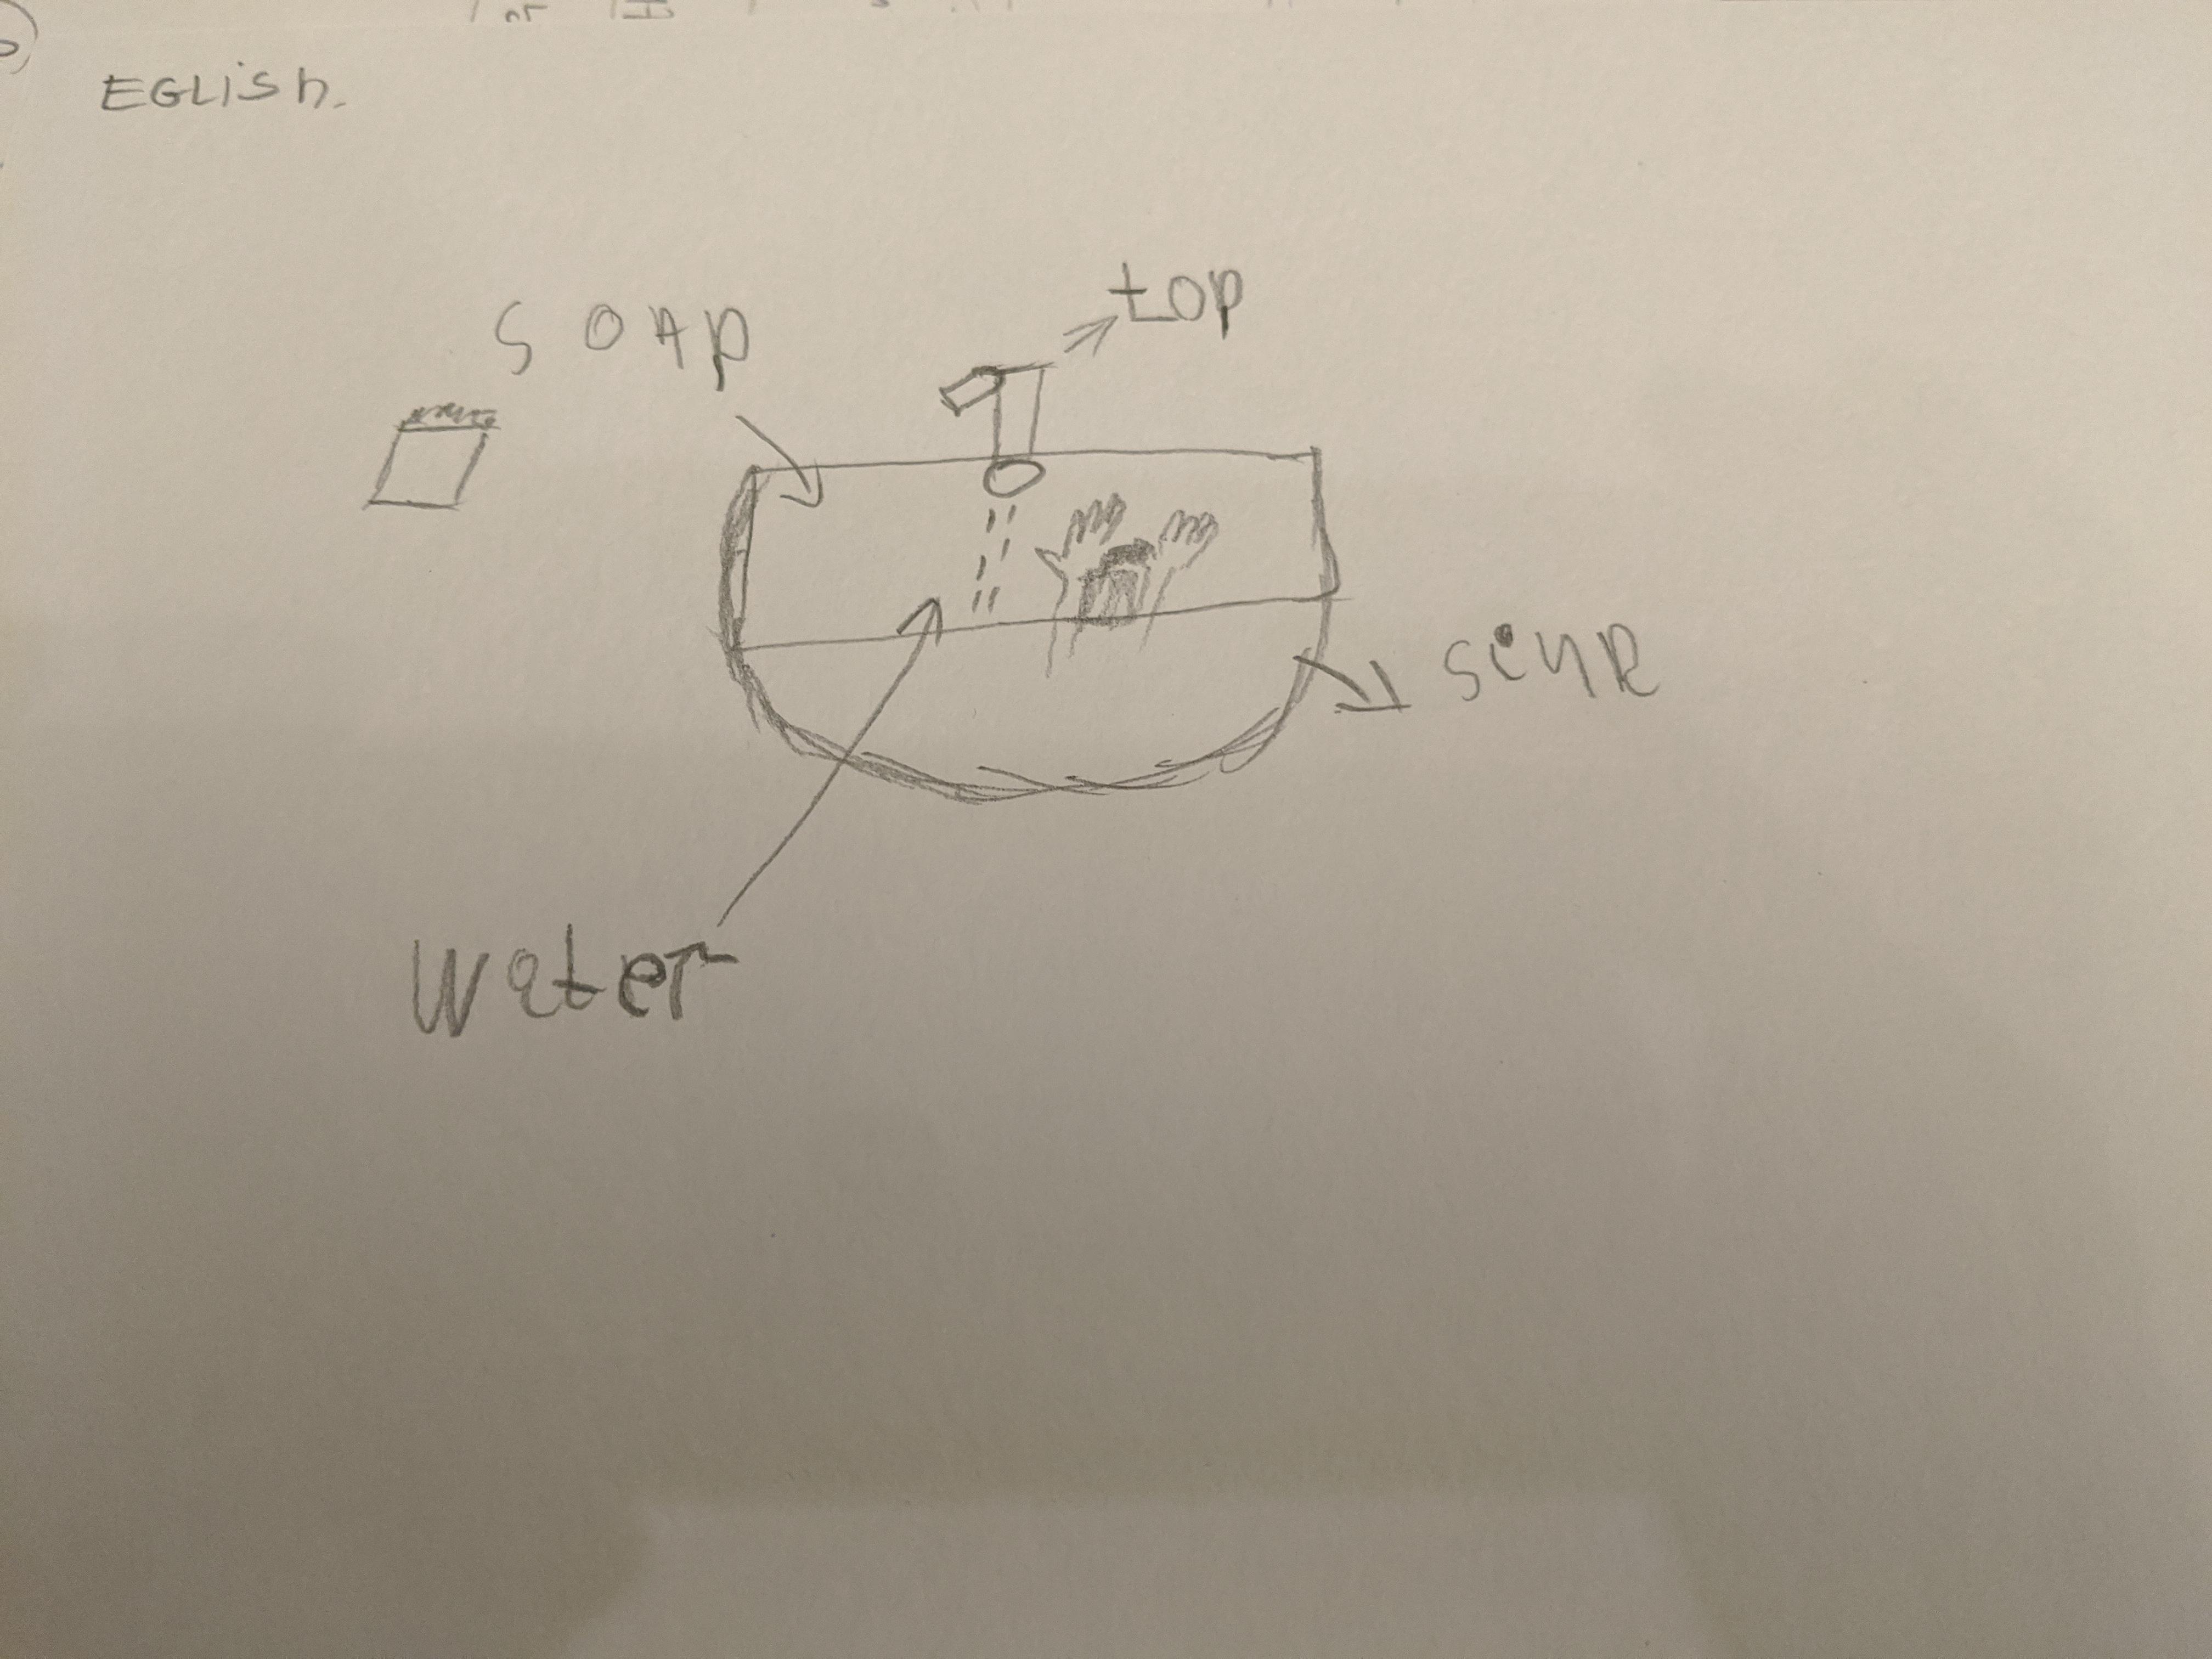 EGLish.
top
SOAp
sink
water